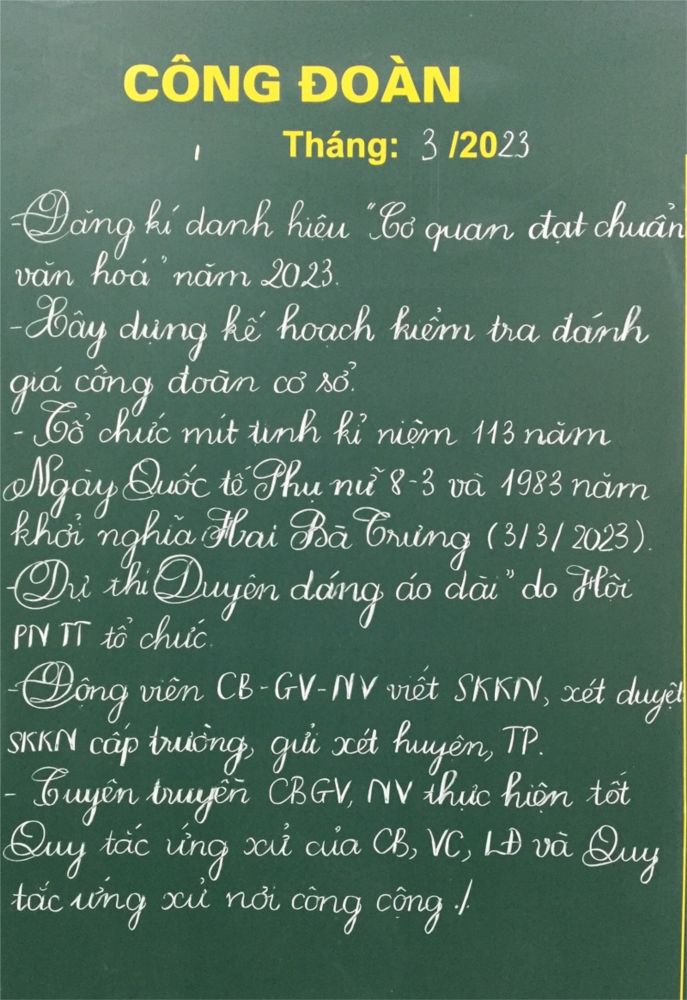 CÔNG ĐOÀN
Tháng: 3 /2023
-Đăng kí danh hiệu "Cơ quan đạt chuẩn
văn hoá" năm 2023.
-Xây dựng kế hoạch kiểm tra đánh
giá công đoàn cơ sở.
- Tổ chức mít tinh kỉ niệm 113 năm
Ngày Quốc tế Phụ nữ 8-3 và 1983 năm
khởi nghĩa Hai Bà Trưng (3/3/2023).
-Dự thi Duyên dáng áo dài" do Hội
PN TT tổ chức.
-Động viên CB-GV-NV viết SKKN, xét duyệt
SKKN cấp trường, gửi xét huyện, TP.
- Tuyên truyền CBGV, NV thực hiện tốt
Quy tắc ứng xử của CB, VC, LĐ và Quy
tắc ứng xử nơi công cộng ./.